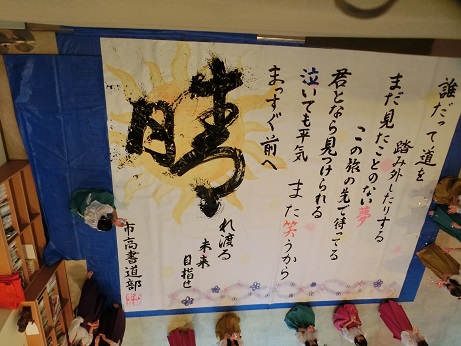 誰だって道を
踏み外したりする
まだ見たことのない夢
この旅の先で待ってる
君となら見つけられる
泣いても平気 また笑うから
まっすぐ前へ
晴れ渡る
未来
目指せ
市高書道部